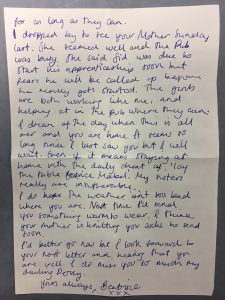 for as long as they can.
I dropped by to see your Mother Sunday
last. She seemed well and the Pub
was busy. She said Sid was due to
start his apprenticeship soon but
fears he will be called up before
he really gets started. The girls
are both working like me, and
helping at in the pub where they can.
I dream of the day when this is all
over and you are home. It seems so
long since I last saw you but I will
wait. Even if it means staying at
home with the deadly chant of 'Lay
the table Mabel. My sisters
really are insufferable.
I do hope the weather isn't too bad
where you are. Next time I'll send
you something warm to wear. I think
your mother is knitting you socks to send
soon.
I'd better go now but I look forward to
your next letter and hearing that you
are well. I do miss you so much my
darling
Yours always, Beatrice
x x x